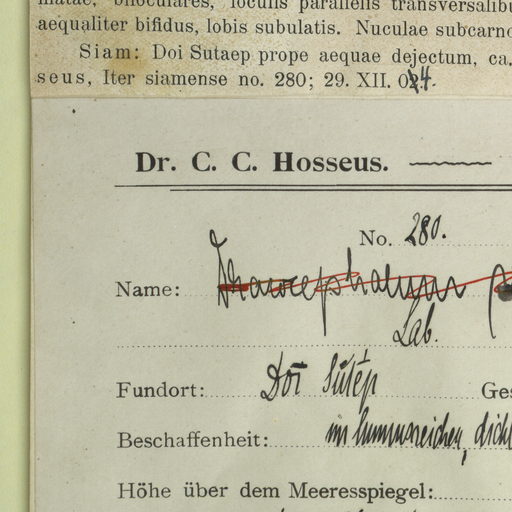 aequaliter bifidus, lobis subulatis. Nuculae subcarno
Siam: Doi Sutaep prope aequae dejectum, ca.
seus, Iter siamense no. 280; 29. XII. 04.
Dr. C. C. Hosseus.
No. 280.
Name:
Lab.
Fundort: Doi Sutep Ges
Beschaffenheit: im humusreichen, dicht
Höhe über dem Meeresspiegel: